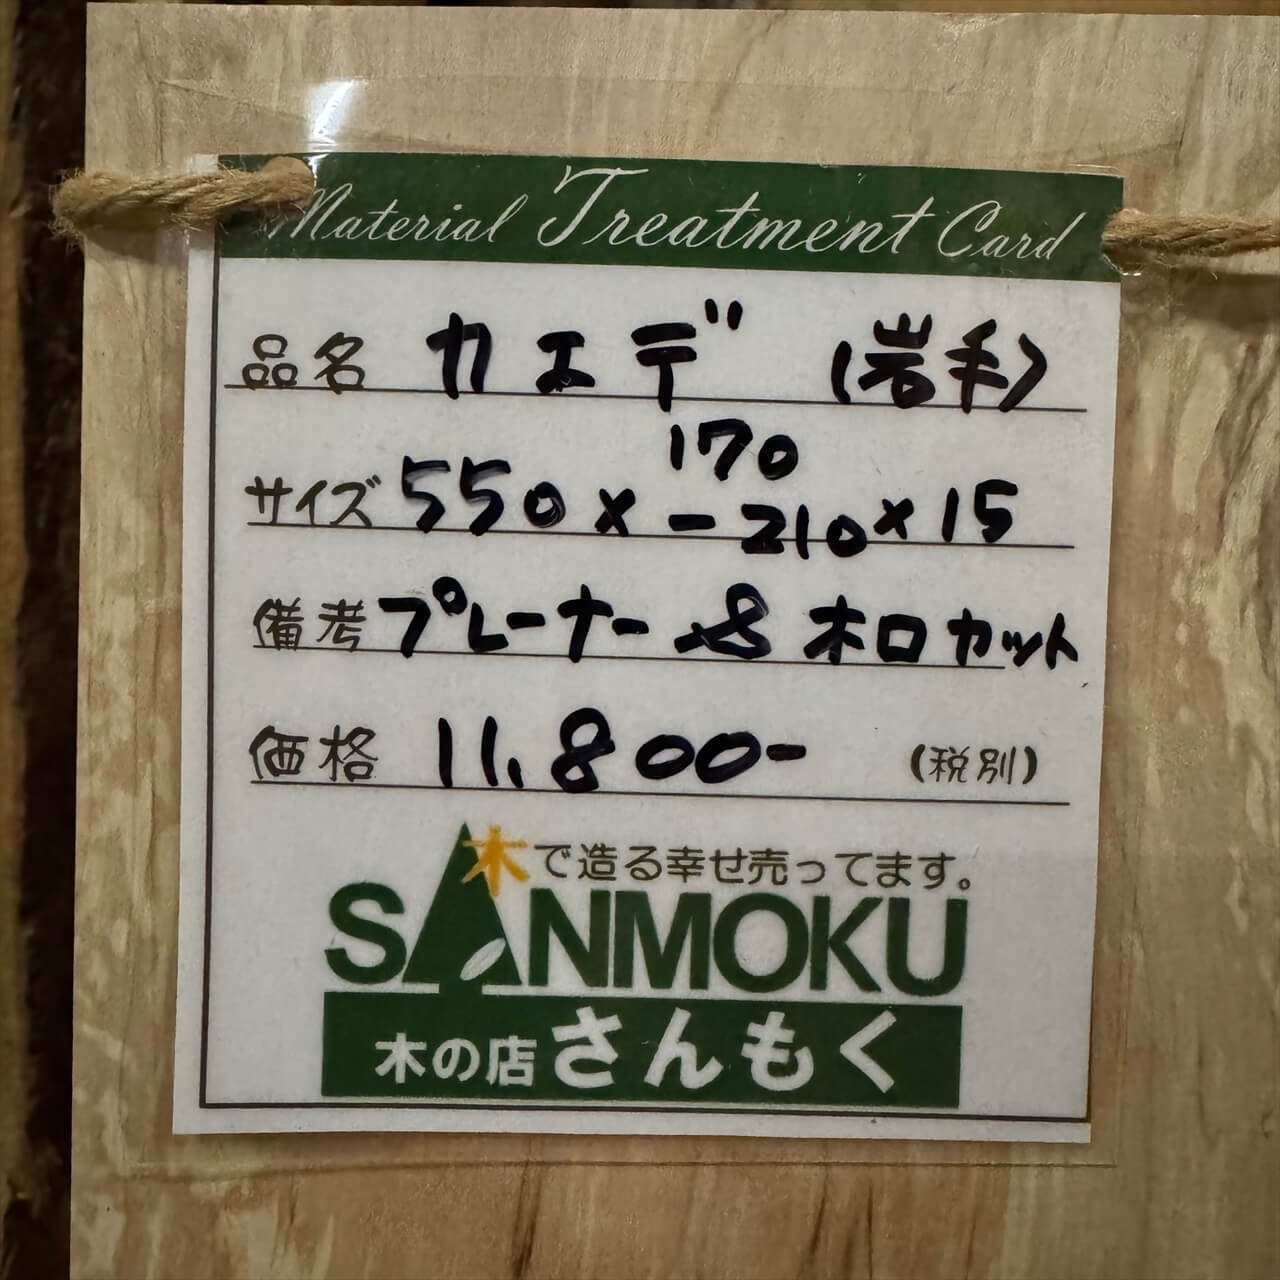 Material Treatment Card
品名 カエデ (岩手)
サイズ 550 × 170-210 × 15
備考 プレーナー & 木口カット
価格 11,800- (税別)
木で造る幸せ売ってます。
SANMOKU
木の店 さんもく